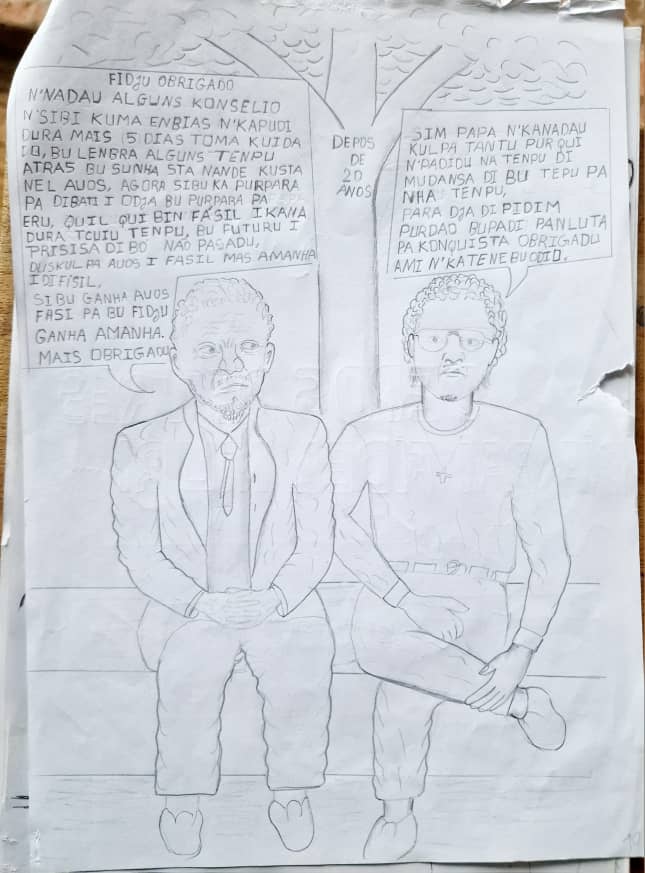 FIDJU OBRIGADO
N'NADAU ALGUNS KONSELIO
N'SIBI KUMA ENBIAS N'KAPUDI
DURA MAIS 5 DIAS TOMA KUIDA
DO, BU LENBRA ALGUNS TENPU
ATRAS BU SUNHA STA NANDE KUSTA
NEL AUOS, AGORA SIBUKA PURPARA
PA DIBATI I ODJA BU PURPARA PA
ERU, QUIL QUI BIN FASIL IKANA
DURA TCUIU TENPU, BU FUTURU I
PRISISA DI BÓ NAO PASADU,
DUSKULPA AUOS I FASIL MAS AMANHA
I DIFISIL.
SI BU GANHA AUOS
FASI PA BU FIDJU
GANHA AMANHA.
MAIS OBRIGADU
DEPOS
DE
20
ANOS
SIM PAPA N'KANADAU
KULPA TANTU PUR QUI
N'PADIDU NA TENPU DI
MUDANSA DI BU TEPU PA
NHA TENPU,
PARA DJA DI PIDIM
PURDAO BUPADI PANLUTA
PA KONQUISTA OBRIGADU
AMI N'KATENEBUODIO.